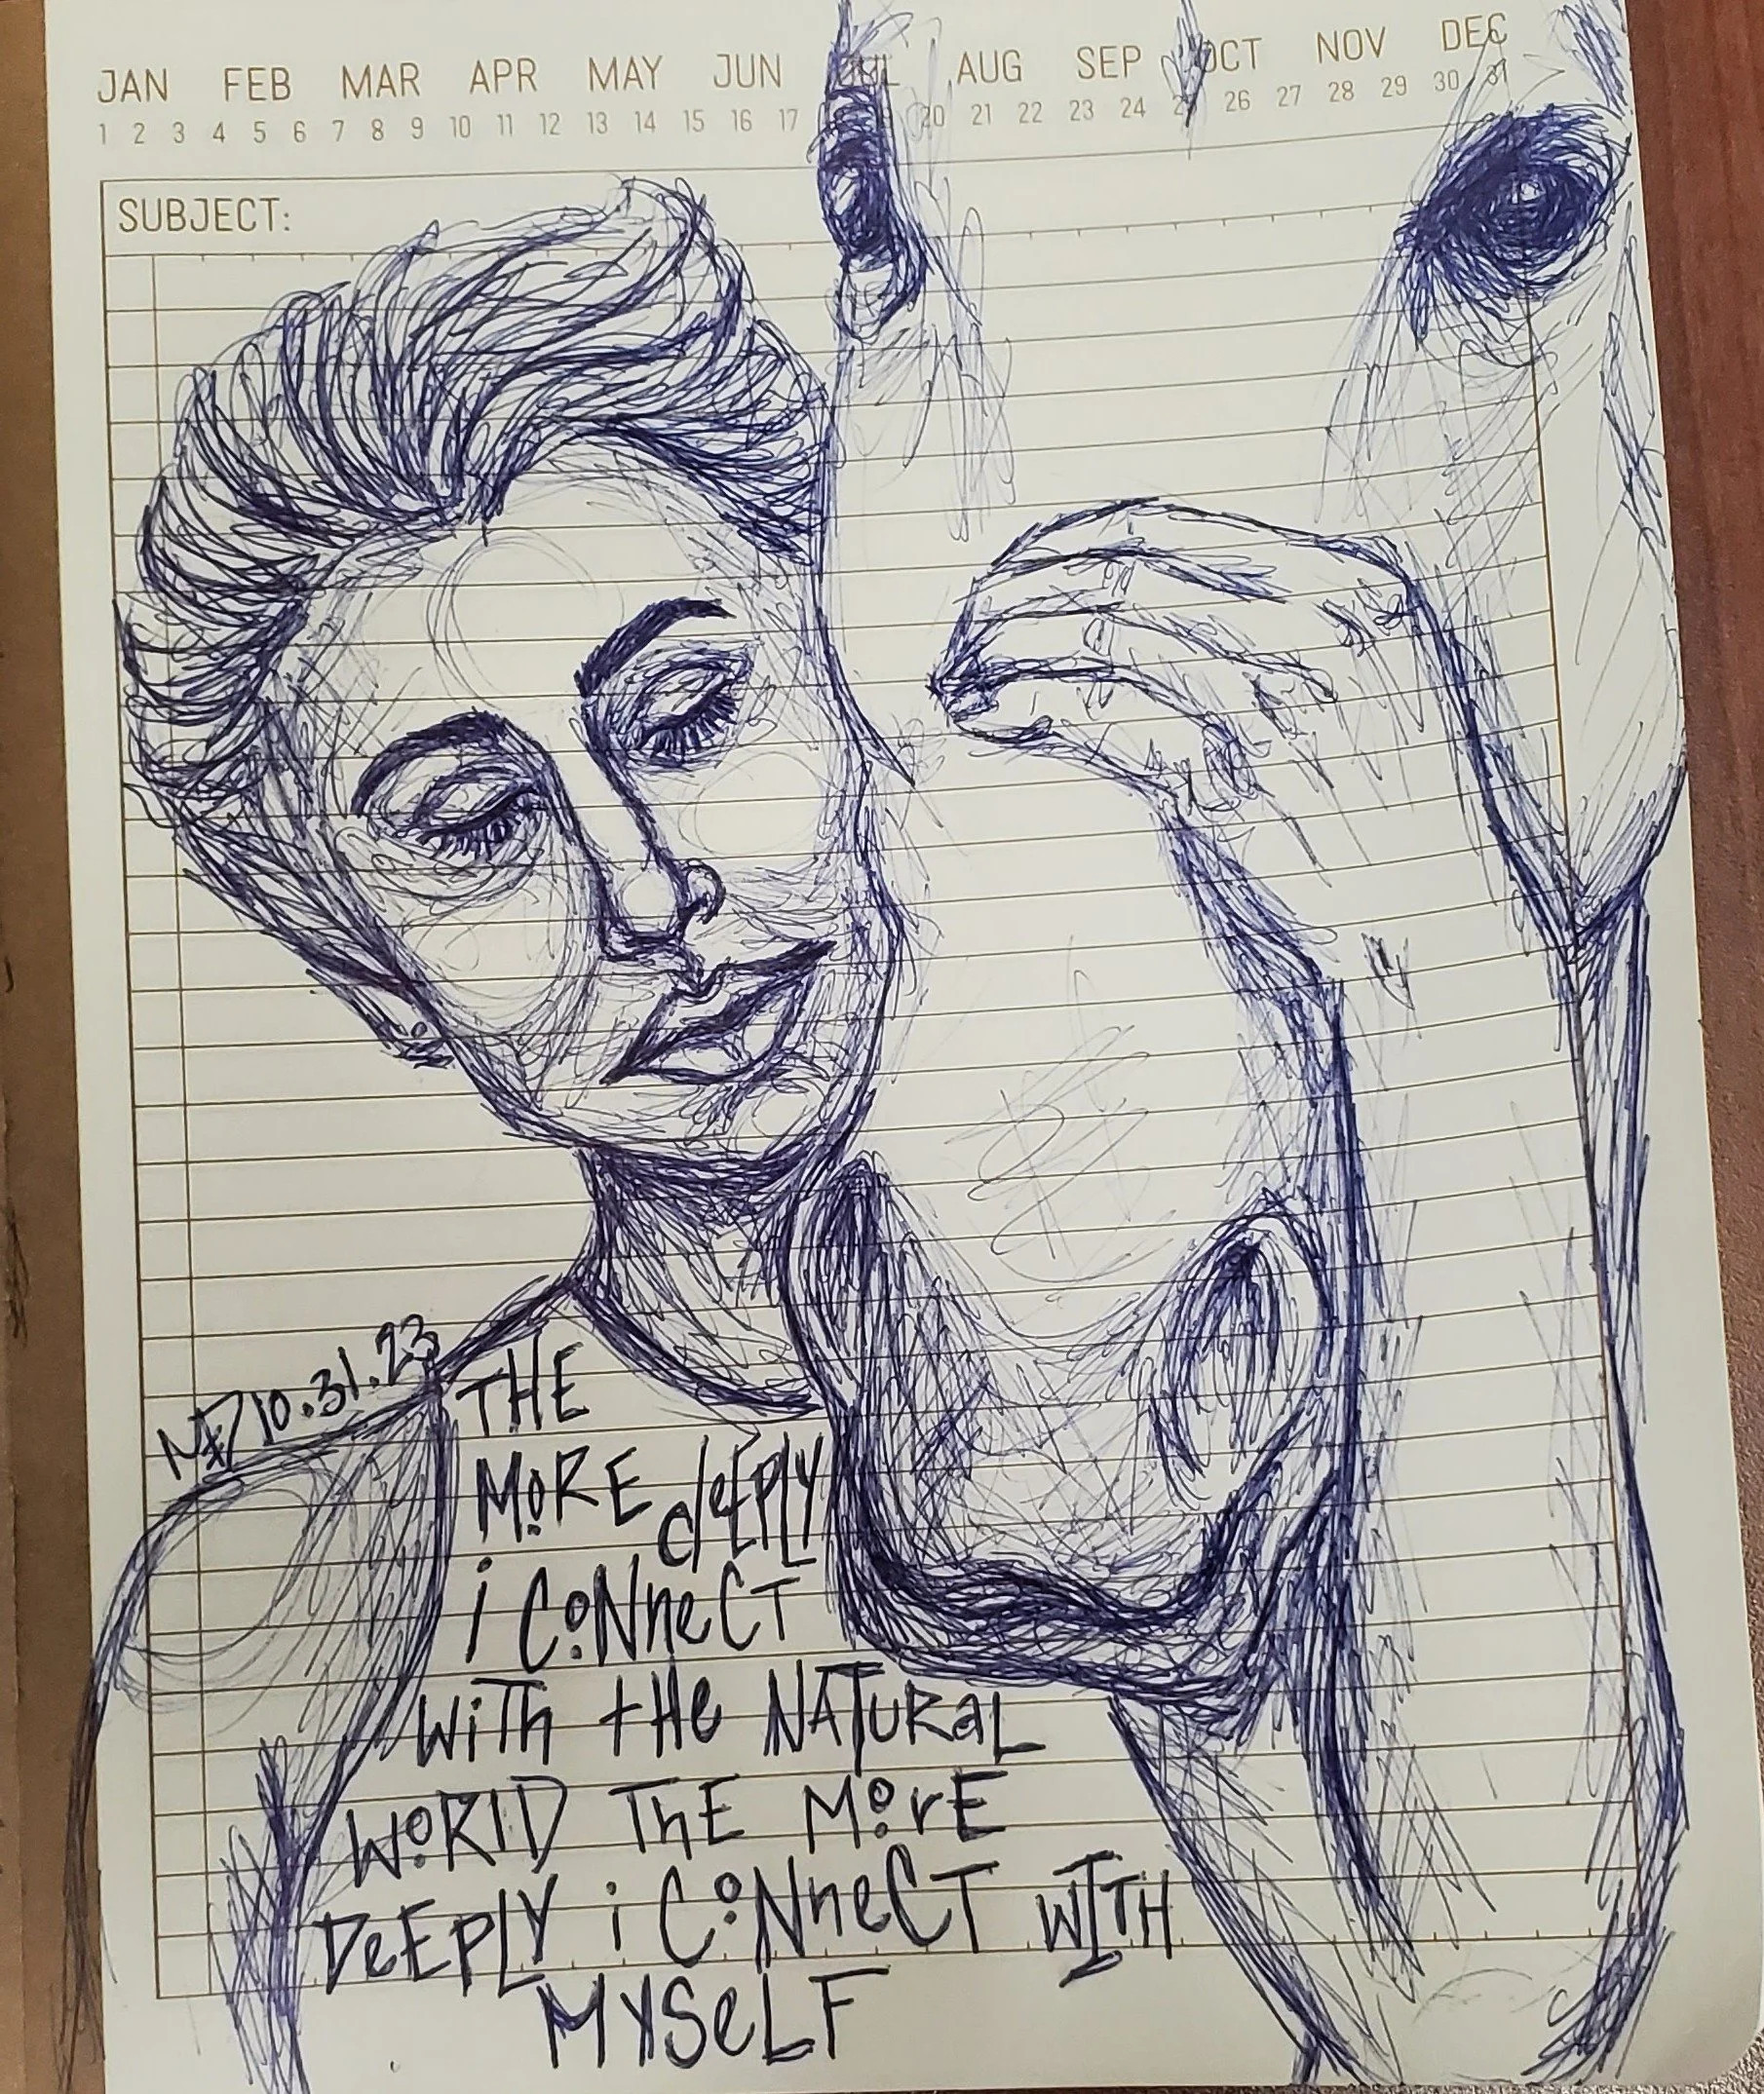 JAN FEB MAR APR MAY JUN JUL AUG SEP OCT NOV DEC
1 2 3 4 5 6 7 8 9 10 11 12 13 14 15 16 17 20 21 22 23 24 25 26 27 28 29 30 31
SUBJECT:
10.31.23
THE
MoRE dEEPLY
i CoNneCT
WiTh tHe NATURaL
WoRlD ThE MorE
DeEPLY i CoNneCT WITH
MYSeLF